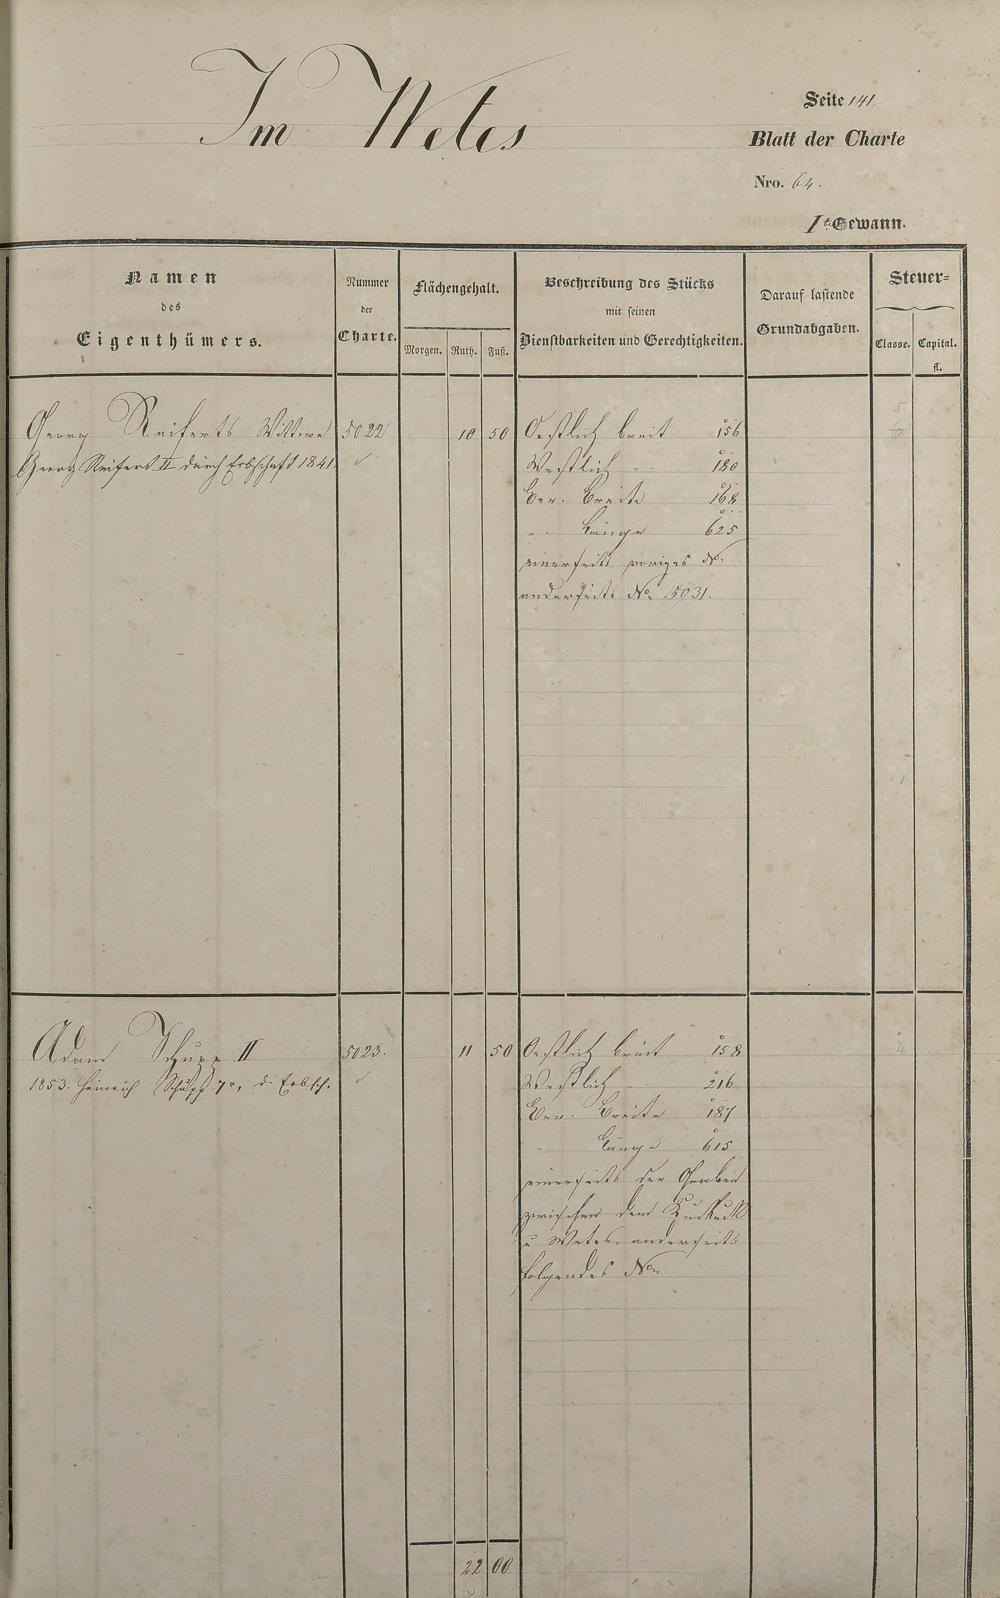 Im Wetes
Seite 141
Blatt der Charte
Nro. 64.
1te Gewann.
Namen
des
Eigenthümers.
Nummer
der
Charte.
Flächengehalt.
Morgen. Ruth. Fuß.
Beschreibung des Stücks
mit seinen
Dienstbarkeiten und Gerechtigkeiten.
Darauf lastende
Grundabgaben.
Steuer=
Classe. Capital.
fl.
Georg Reiferts Wittwe 5022 10 50 Oestlich breit 156
Georg Reifert II durch Erbschaft 1841. Westlich " 180
Ber. Breite 168
" Länge 625
einerseits voriges No.
anderseits No. 5031.
Adam Schupp II 5023. 11 50 Oestlich breit 158 4
1853. Heinrich Schupp d. Erbsch. Westlich " 216
Ber. Breite 187
" Länge 615
einerseits der Graben
zwischen dem
u Wetes, anderseits
folgendes No.
22 00